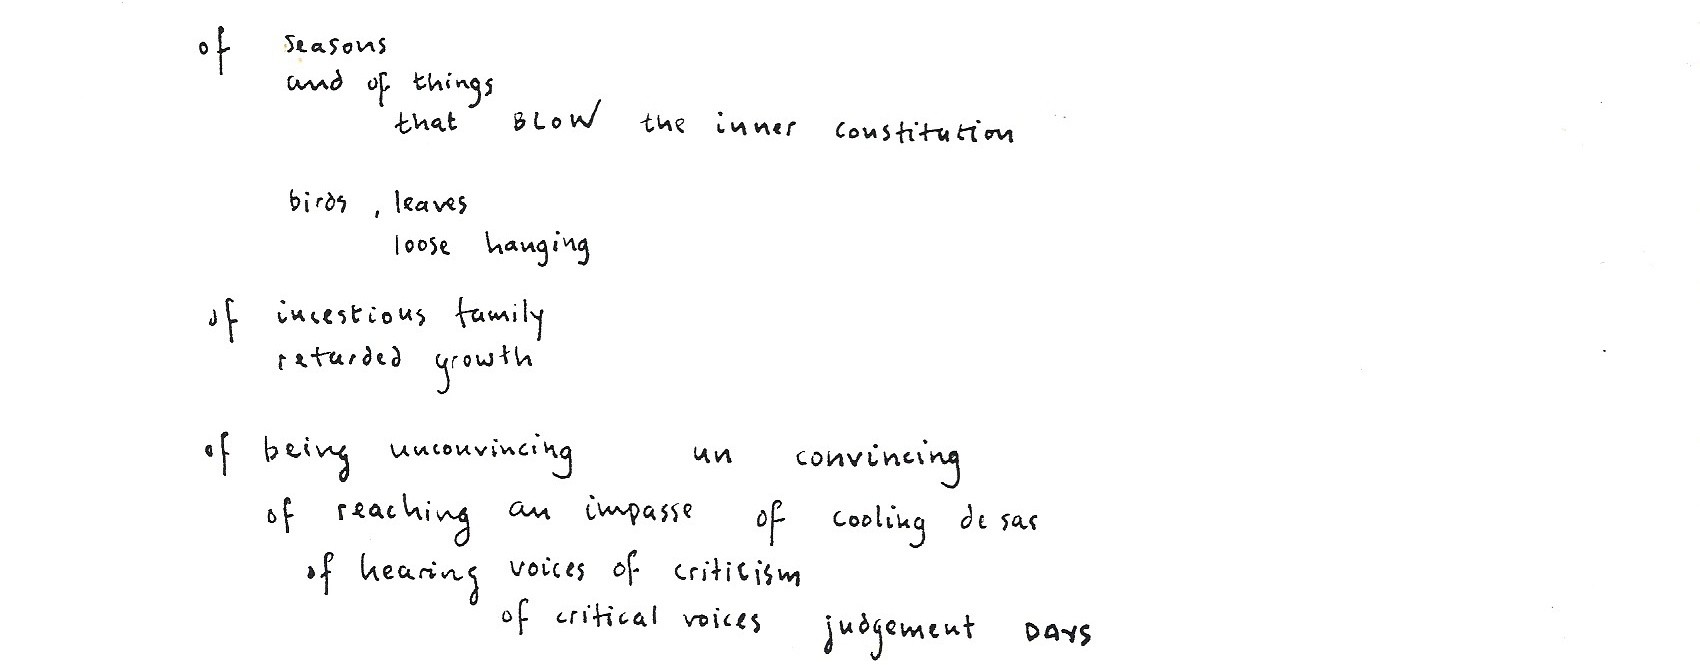 of seasons
and of things
that BLOW the inner constitution
birds , leaves
loose hanging
of incestious family
retarded growth
of being unconvincing un convincing
of reaching an impasse of cooling de sac
of hearing voices of criticism
of critical voices judgement DAYS